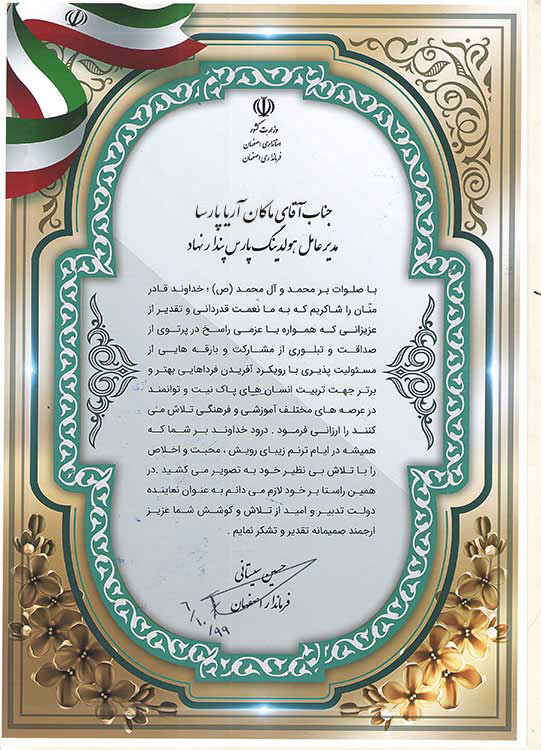 وزارت کشور
استانداری اصفهان
فرمانداری اصفهان
جناب آقای ماکان آریا پارسا
مدیر عامل هولدینگ پارس پندار نهاد
با صلوات بر محمد و آل محمد (ص) ؛ خداوند قادر
منّان را شاکریم که به ما نعمت قدردانی و تقدیر از
عزیزانی که همواره با عزمی راسخ در پرتوی از
صداقت و تبلوری از مشارکت و بارقه هایی از
مسئولیت پذیری با رویکرد آفریدن فرداهایی بهتر و
برتر جهت تربیت انسان های پاک نیت و توانمند
در عرصه های مختلف آموزشی و فرهنگی تلاش می
کنند را ارزانی فرمود . درود خداوند بر شما که
همیشه در ایام ترنم زیبای رویش ، محبت و اخلاص
را با تلاش بی نظیر خود به تصویر می کشید .در
همین راستا بر خود لازم می دانم به عنوان نماینده
دولت تدبیر و امید از تلاش و کوشش شما عزیز
ارجمند صمیمانه تقدیر و تشکر نمایم .
حسین سیستانی
فرماندار اصفهان
۶/۱۰/۹۹